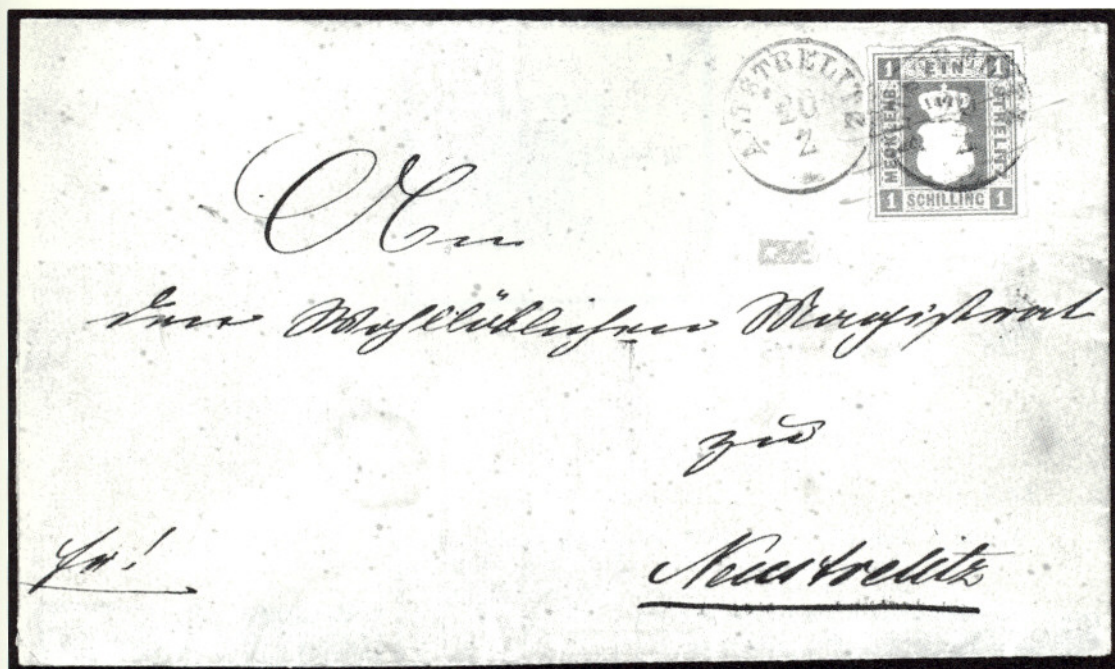 ALTSTRELITZ
20
2
1 EIN 1
MECKLENB.
STRELITZ
1 SCHILLING 1
An
den Wohllöblichen Magistrat
zu
fr!
Neustrelitz